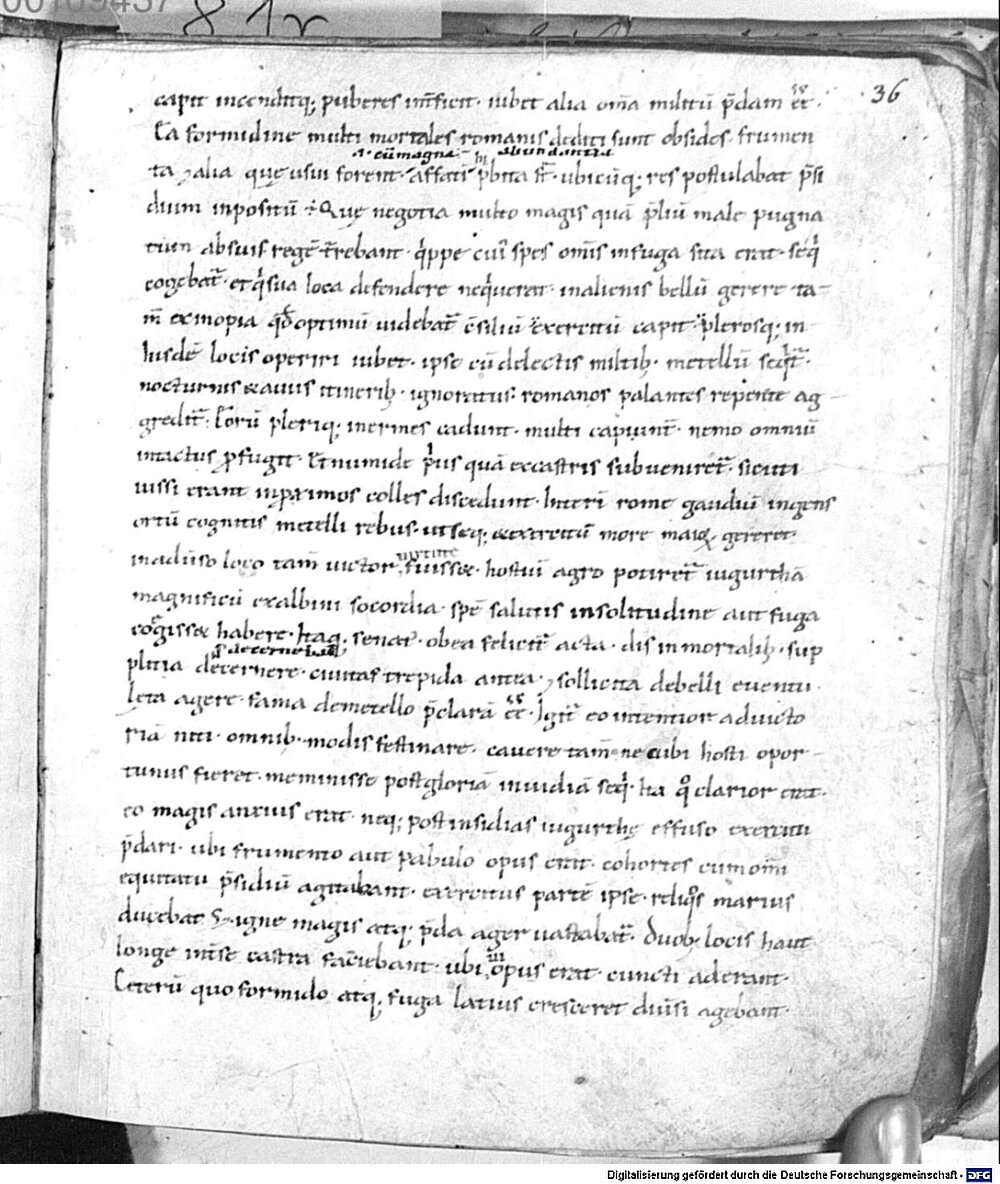 00109437
81r
36
capit incenditq; puberes int̄ficit · iubet alia om̄a militū p̄dam ēē ·
Ea formidine multi mortales romanis dediti sunt obsides · frumen
.i. cū magna abundantia
ta ⁊ alia quę usui forent · affatī p̄bita st̄ · ubicūq; res postulabat p̄si
dium inpositū ÷ Quę negotia multo magis quā p̄liū male pugna
tum absuis regē t̄rebant · q̍ppe cui spes om̄is infuga sita erat · seq̍
cogebat᷑ · et q̍ sua loca defendere neq̍uerat · inalienis bellū gerere · ta
m̄ exinopia qđ optimū uidebat᷑ c̄siliū exercitū capit plerosq; in
hisdē locis operiri iubet · ipse cū delectis militib; · metellū seq̍t᷑ ·
nocturnis & auiis itinerib; · ignoratus · romanos palantes repente ag
gredit᷑ · Eorū pleriq; inermes cadunt · multi capiunt᷑ · nemo omniū
intactus profugit · Et numide p̍us quā excastris subueniret᷑ · sicuti
iussi erant inproximos colles discedunt · Interī rome gaudiū ingens
ortū cognitis metelli rebus · ut seq; & exercitū more maioꝝ gereret ·
uirtute
inaduso loco tam̄ uictor fuiss& · hostiū agro potiret᷑ iugurthā
magnificū exalbini socordia · spē salutis insolitudine aut fuga
coegiss& habere · Itaq; senat᷑ · obea felicit᷑ acta · dis inmortalib; · sup
decernebat
plitia decernere · ciuitas trepida antea · ⁊ sollicita debelli euentu ·
leta agere · fama demetello p̄clarā ēē · Igit᷑ eo intentior aduicto
riā niti · omnib; · modis festinare · cauere tam̄ · necubi hosti opor
tunus fieret · meminisse postgloriā inuidiā seq̍ · Ita q° clarior erat ·
eo magis anxius erat · neq; postinsidias iugurthę effuso exercitu
p̄dari · ubi frumento aut pabulo opus erat · cohortes cum om̄i
equitatu p̄sidiū agitabant · exercitus partē ipse · reliq°s marius
ducebat S; igne magis atq; p̄da ager uastabat᷑ · Duob; locis haut
longe int̄se castra faciebant · ubi ui opus erat · cuncti aderant ·
Ceterū quo formido atq; fuga latius cresceret diu̅si agebant ·
Digitalisierung gefördert durch die Deutsche Forschungsgemeinschaft - DFG